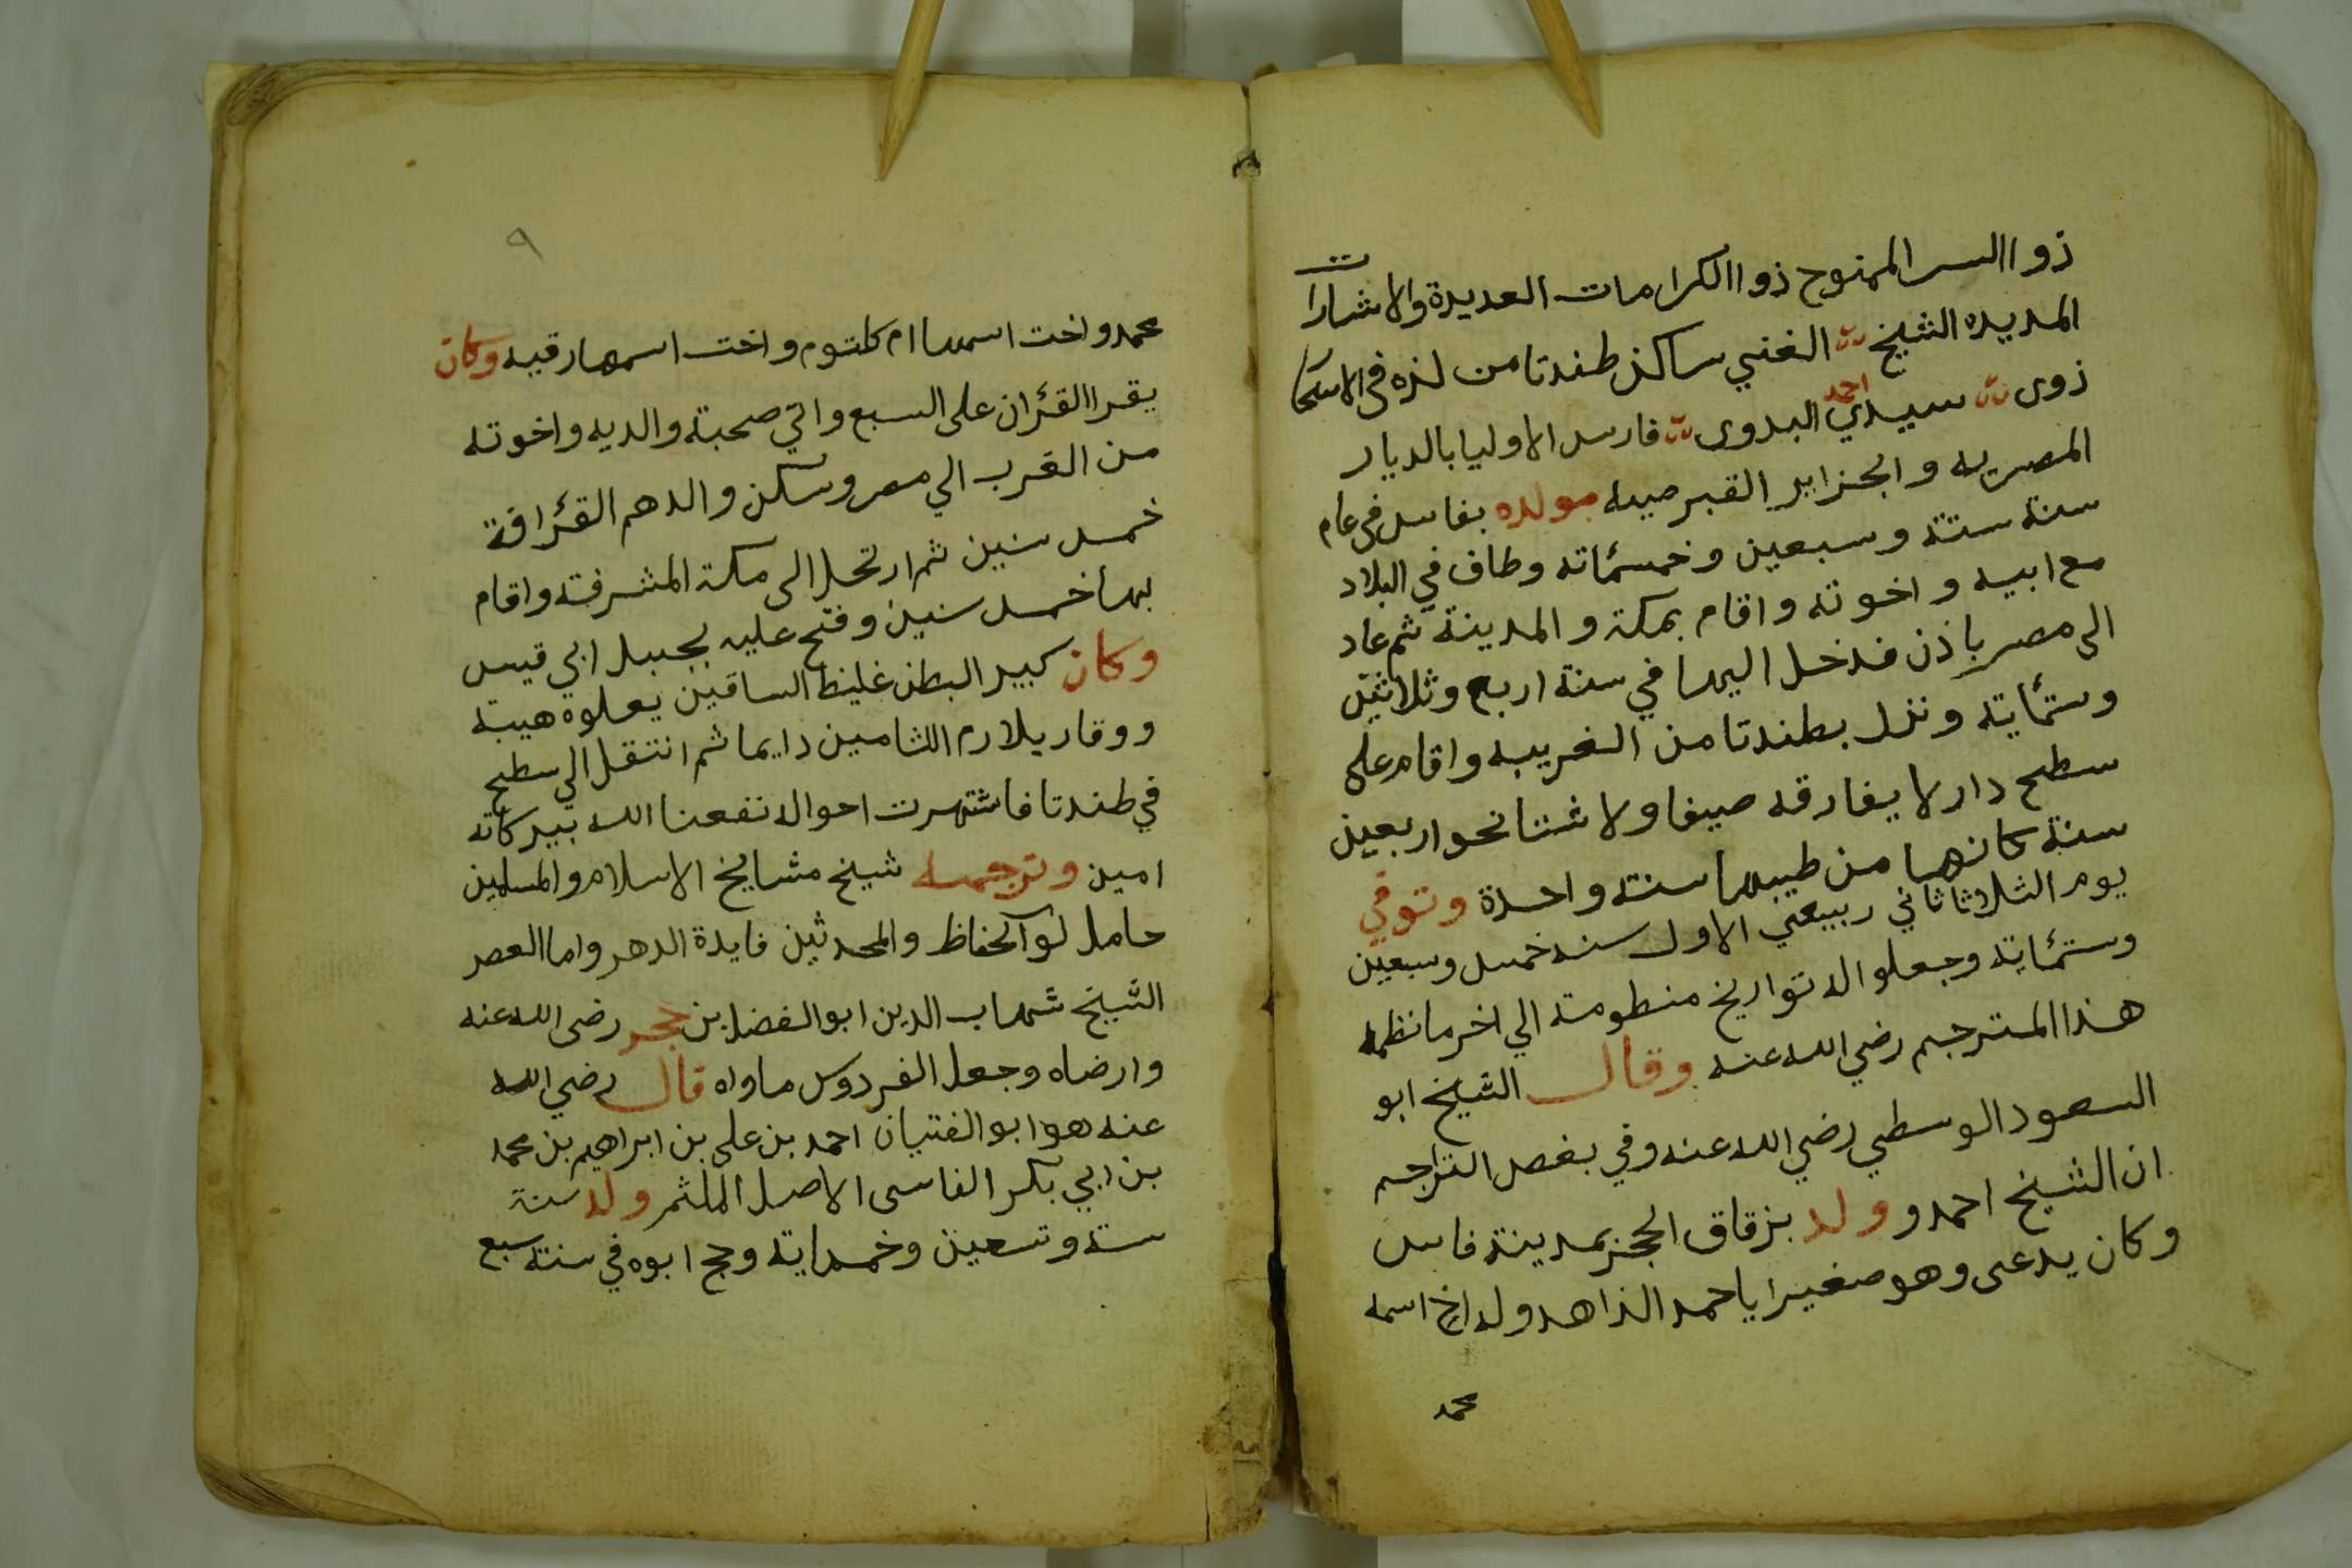 ذوا السر الممنوح ذوا الكرامات العديدة والاشارات
المديده الشيخ الغني ساكن طندتا من لزه في الاستحا
ذوى سيدي احمد البدوى فارس الاوليا بالديار
المصريه والجزاير القبرصيه مولده بفاس في عام
سنة ستة وسبعين وخمسمائه وطاف في البلاد
مع ابيه واخوته واقام بمكة والمدينة ثم عاد
الى مصر باذن فدخل اليها في سنة اربع وثلاثين
وستمايه ونزل بطندتا من الغربيه واقام على
سطح دار لا يفارقه صيفا ولا شتا نحو اربعين
سنة كانها من طيبها سنة واحدة وتوفي
يوم الثلاثا ثاني ربيعي الاول سنه خمس وسبعين
وستمايه وجعلوا له تواريخ منظومة الي اخر ما نظمه
هذا المترجم رضي الله عنه وقال الشيخ ابو
السعود الوسطي رضي الله عنه وفي بعض التراجم
ان الشيخ احمد و ولد بزقاق الحجز بمدينة فاس
وكان يدعى وهو صغيرا ياحمد الزاهد وله اخ اسمه
محمد
٩
محمد واخت اسمها ام كلتوم واخت اسمها رقيه وكان
يقرا القرءان على السبع واتي صحبة والديه واخوته
من الغرب الي مصر وسكن والدهم القرافة
خمس سنين ثم ارتحل الى مكة المشرفة واقام
بها خمس سنين وفتح عليه بجبل ابي قيس
وكان كبير البطن غليظ الساقين يعلوه هيبة
ووقار يلازم اللثامين دايما ثم انتقل الي سطح
في طندتا فاشتهرت احواله نفعنا الله ببركاته
امين وترجمه شيخ مشايخ الاسلام والمسلمين
حامل لوآ الحفاظ والمحدثين فايدة الدهر واما العصر
الشيخ شهاب الدين ابو الفضل بن حجر رضى الله عنه
وارضاه وجعل الفردوس ماواه قال رضي الله
عنه هو ابو الفتيان احمد بن على بن ابراهيم بن محمد
بن ابي بكر الفاسى الاصل الملثم ولد سنة
ستة وتسعين وخمسماية وحج ابوه في سنة سبع